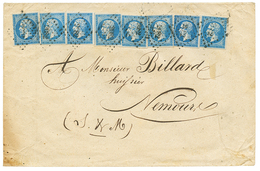 A Monsieur Billard
huissier
Nemours
(S. & M.)